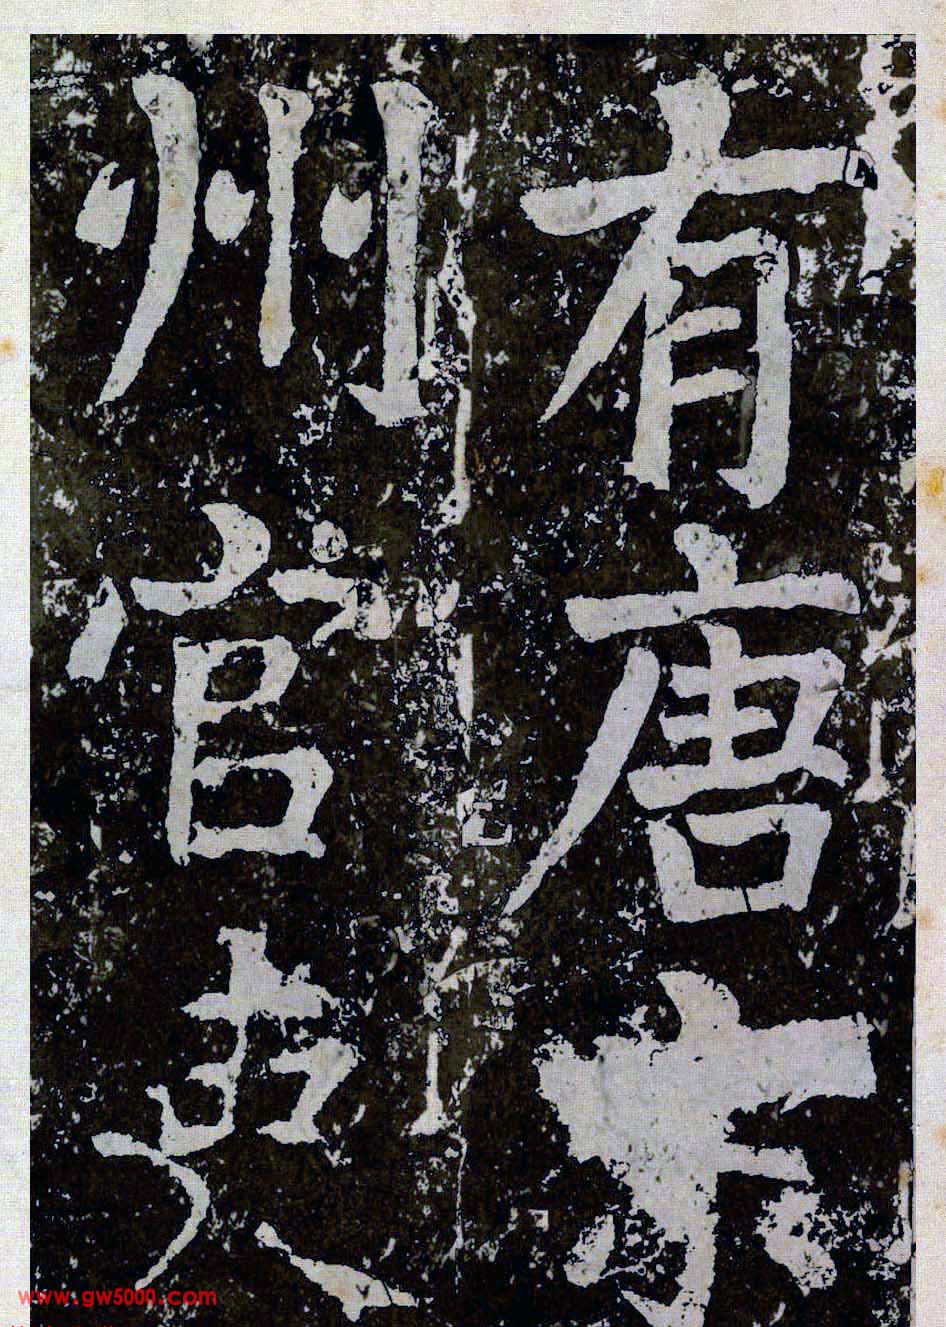 有唐宋
州官吏
www.gw5000.com